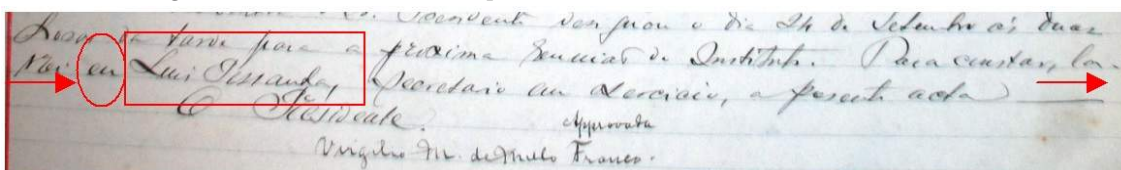 O Sr. Presidente designou o dia 24 de Setembro ás duas
horas da tarde para a proxima reunião do Instituto. Para constar, la-
vrei eu Luis Pessanha, secretario em exercicio, a presente acta
O Presidente.
Approvada
Virgilio M. de Mello Franco.